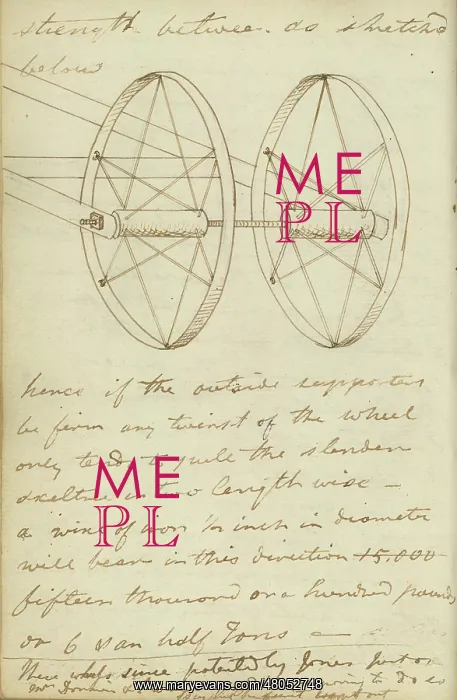 strength betwee. as sketchd
below
ME
PL
hence if the outside supporters
be firm any twinst of the wheel
only tend to pull the slender
axeltree in two length wise –
ME
PL
a wire of iron ¼ inch in diameter
will bear in this direction 15,000
fifteen thousand on a hundred pounds
or 6 & an half Tons –
These wheels since patented by Jones
Mr to do so
www.maryevans.com/48052748